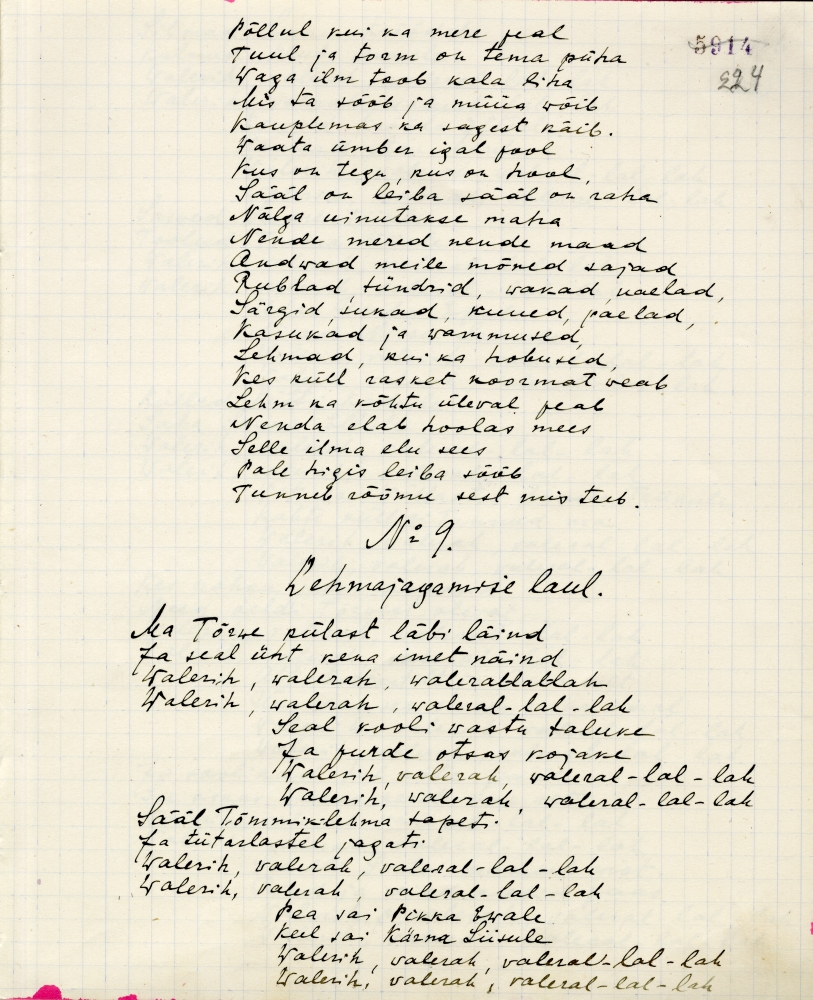 5914
224
Põllul kui ka mere peal
Tuul ja torm on tema püha
Waga ilm toob kala liha
Mis ta sööb ja müüa wõib
Kauplemas ka sagest käib.
Waata ümber igal pool
Kus on tegu, kus on hool,
Sääl on leiba sääl on raha
Nälga uinutakse maha
Nende mered nende maad
Andwad meile mõned sajad
Rublad, tündrid, wakad, naelad,
Särgid, sukad, kuued, paelad,
Kasukad ja wammused,
Lehmad, kui ka hobused,
Kes küll rasket koormat weab
Lehm ka kõhtu üleval peab
Nenda elab hoolas mees
Selle ilma elu sees
Pale higis leiba sööb
Tunneb rõõmu sest mis teeb.
No 9.
Lehmajagamise laul.
Ma Tõrwe külast läbi läind
Ja seal üht kena imet näind
Walerih, walerah, waleralalalah
Walerih, walerah, waleral-lal-lah
Seal kooli wastu taluke
Ja purde otsas kojake
Walerih, valerah, waleral-lal-lah
Walerih, walerah, waleral-lal-lah
Sääl Tõmmiklehma tapeti.
Ja tütarlastel jagati.
Walerih, valerah, valeral-lal-lah
Walerih, valerah, valeral-lal-lah
Pea sai Pikka Ewale
Keel sai Kärna Liisule
Walerih, valerah, valeral-lal-lah
Walerih, valerah, valeral-lal-lah